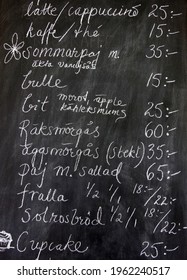 latte/cappuccino 25:-
kaffe/thé 15:-
Sommarpaj m. 35:-
äkta vaniljsås
bulle 15:-
morot, äpple
bit kärleksmums 25:-
Räksmörgås 60:-
äggsmörgås (stekt) 35:-
Paj m. sallad 65:-
fralla 1/2 1/1 18:-/22:-
Solrosbröd 1/2 1/1 18:-/22:-
Cupcake 25:-
www.shutterstock.com · 1962240517